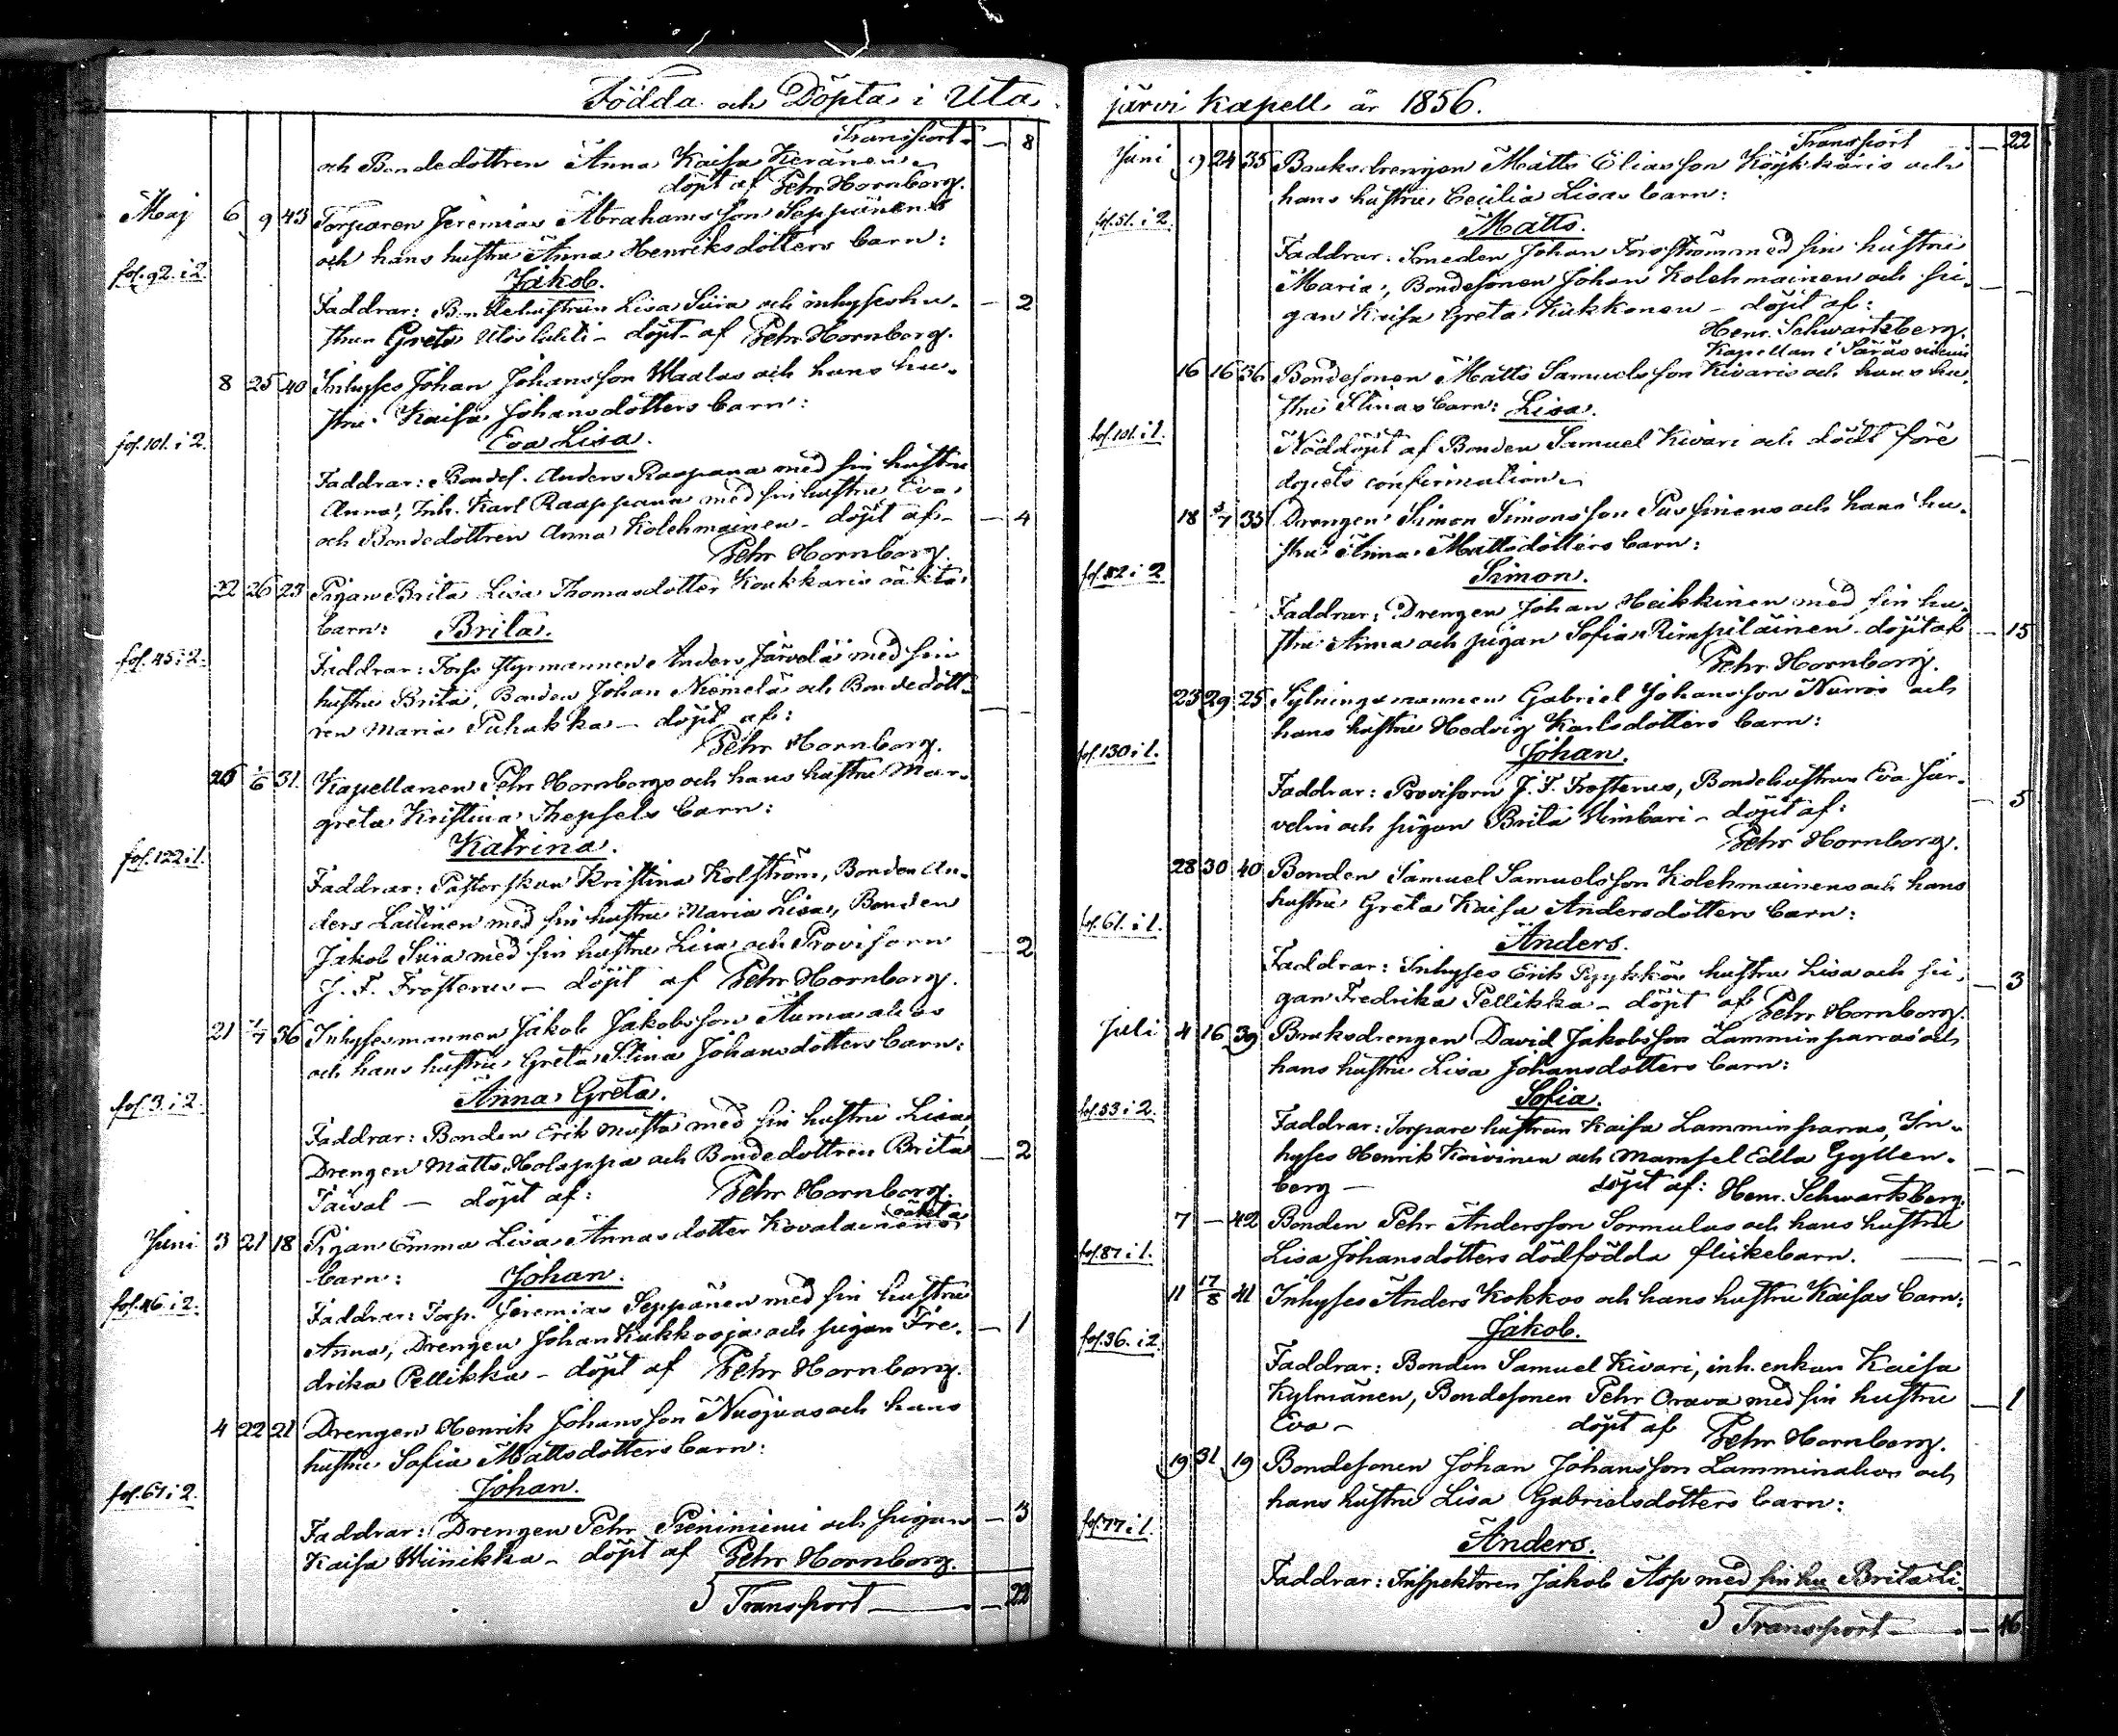 Födda och Döpta i Uta
Transport — 8
och Bondedottren Anna Kaisa Keränen
döpt af Pehr Hornborg.
Maj 6 9 43 Torparen Jeremias Abrahamsson Seppänens
och hans hustru Anna Henriksdotters barn:
fol. 92. i 2. Jakob.
Faddrar: Bondehustrun Lisa Siira och inhyseshu- — 2
strun Greta Utoslahti - döpt af Pehr Hornborg.
8 25 40 Inhyses Johan Johansson Maalas och hans hu-
stru Kaisa Johansdotters barn:
fol. 101. i 2. Eva Lisa.
Faddrar: Bondes. Anders Raapana med sin hustru
Anna, Inh. Karl Raappana med sin hustru Eva
och Bondedottren Anna Kolehmainen - döpt af — 4
Pehr Hornborg.
22 26 23 Pigan Brita Lisa Thomasdotter Koukkaris oäkta
barn: Brita.
fol. 45 i 2. Faddrar: Forss styrmannen Anders Järvelä med sin
hustru Brita, Bonden Johan Niemelä och Bondedött-
ren Maria Puhakka — döpt af: — -
Pehr Hornborg.
26 1/6 31. Kapellanen Pehr Hornborgs och hans hustru Mar-
greta Kristina Thepsels barn:
fol. 122 i 1. Katrina.
Faddrar: Pastorskan Kristina Kolström, Bonden An-
ders Laitinen med sin hustru Maria Lisa, Bonden
Jakob Siira med sin hustru Lisa och Provisorn — 2
J. F. Frosterus — döpt af Pehr Hornborg.
21 1/7 36 Inhysesmannen Jakob Jakobsson Aumaalias
och hans hustru Greta Stina Johansdotters barn:
fol. 3. i 2. Anna Greta.
Faddrar: Bonden Erik Musta med sin hustru Lisa,
Drengen Matts Holappa och Bondedottren Brita — 2
Taival — döpt af: Pehr Hornborg.
Juni 3 21 18 Pigan Emma Lisa Annasdotter Kovalainens oäkta
barn: Johan.
fol. 46 i 2. Faddrar: Torp. Jeremias Seppänen med sin hustru
Anna, Drengen Johan Kukkooja och pigan Fre- — 1
drika Pellikka - döpt af Pehr Hornborg.
4 22 21 Drengen Henrik Johansson Nuojuas och hans
hustru Sofia Mattsdotters barn:
fol. 61 i 2. Johan.
Faddrar: Drengen Pehr Pieniniemi och pigan — 3
Kaisa Wiinikka - döpt af Pehr Hornborg.
Transport — 22
järvi Kapell år 1856.
Transport — 22
Juni 9 24 35 Bruksdrengen Matts Eliasson Köykkäris och
hans hustru Cecilia Lisas barn:
fol. 51. i 2. Matts.
Faddrar: Smeden Johan Forsström med sin hustru
Maria, Bondesonen Johan Kolehmainen och pi-
gan Kaisa Greta Kukkonen — döpt af:
Henr. Schwartzberg,
Kapellan i Säräisniemi
16 16 36 Bondesonen Matts Samuelsson Kivaris och hans hu-
stru Stinas barn: Lisa.
fol. 101. i 1. Nöddöpt af Bonden Samuel Kivari och dödt före
dopets confirmation
18 5/7 35 Drengen Simon Simonsson Pussinens och hans hu-
stru Anna Mattsdotters barn:
fol. 82 i 2 Simon.
Faddrar: Drengen Johan Heikkinen med sin hu-
stru Anna och pigan Sofia Rimpiläinen - döpt af — 15
Pehr Hornborg.
23 29 25 Sytningsmannen Gabriel Johansson Nurros och
hans hustru Hedvig Karlsdotters barn:
fol. 130 i 1. Johan.
Faddrar: Provisorn J. F. Frosterus, Bondehustrun Eva Jur-
velin och pigan Brita Kimbari - döpt af: — 5
Pehr Hornborg.
28 30 40 Bonden Samuel Samuelsson Kolehmainens och hans
hustru Greta Kaisa Andersdotters barn:
fol. 61. i 1. Anders.
Faddrar: Inhyses Erik Pyykkös hustru Lisa och pi- — 3
gan Fredrika Pellikka — döpt af Pehr Hornborg.
Juli 4 16 39 Bruksdrengen David Jakobsson Lamminparras och
hans hustru Lisa Johansdotters barn:
fol. 53 i 2. Sofia.
Faddrar: Torparehustrun Kaisa Lamminparras, In-
hyses Henrik Koivinen och Mamsel Edla Gyllen-
berg — döpt af: Henr. Schwartzberg.
7 — 42 Bonden Pehr Andersson Sormulas och hans hustru
fol. 87 i 1. Lisa Johansdotters dödfödda flickebarn.
11 17/8 41 Inhyses Anders Kokkos och hans hustru Kaisas barn:
fol. 36. i 2 Jakob.
Faddrar: Bonden Samuel Kivari, inh. enkan Kaisa
Kylmänen, Bondesonen Pehr Orava med sin hustru — 1
Eva — döpt af Pehr Hornborg.
19 31 19 Bondesonen Johan Johansson Lamminahos och
hans hustru Lisa Gabrielsdotters barn:
fol. 77 i 1. Anders.
Faddrar: Inspektoren Jakob Asp med sin hu Brita Li-
Transport — 46